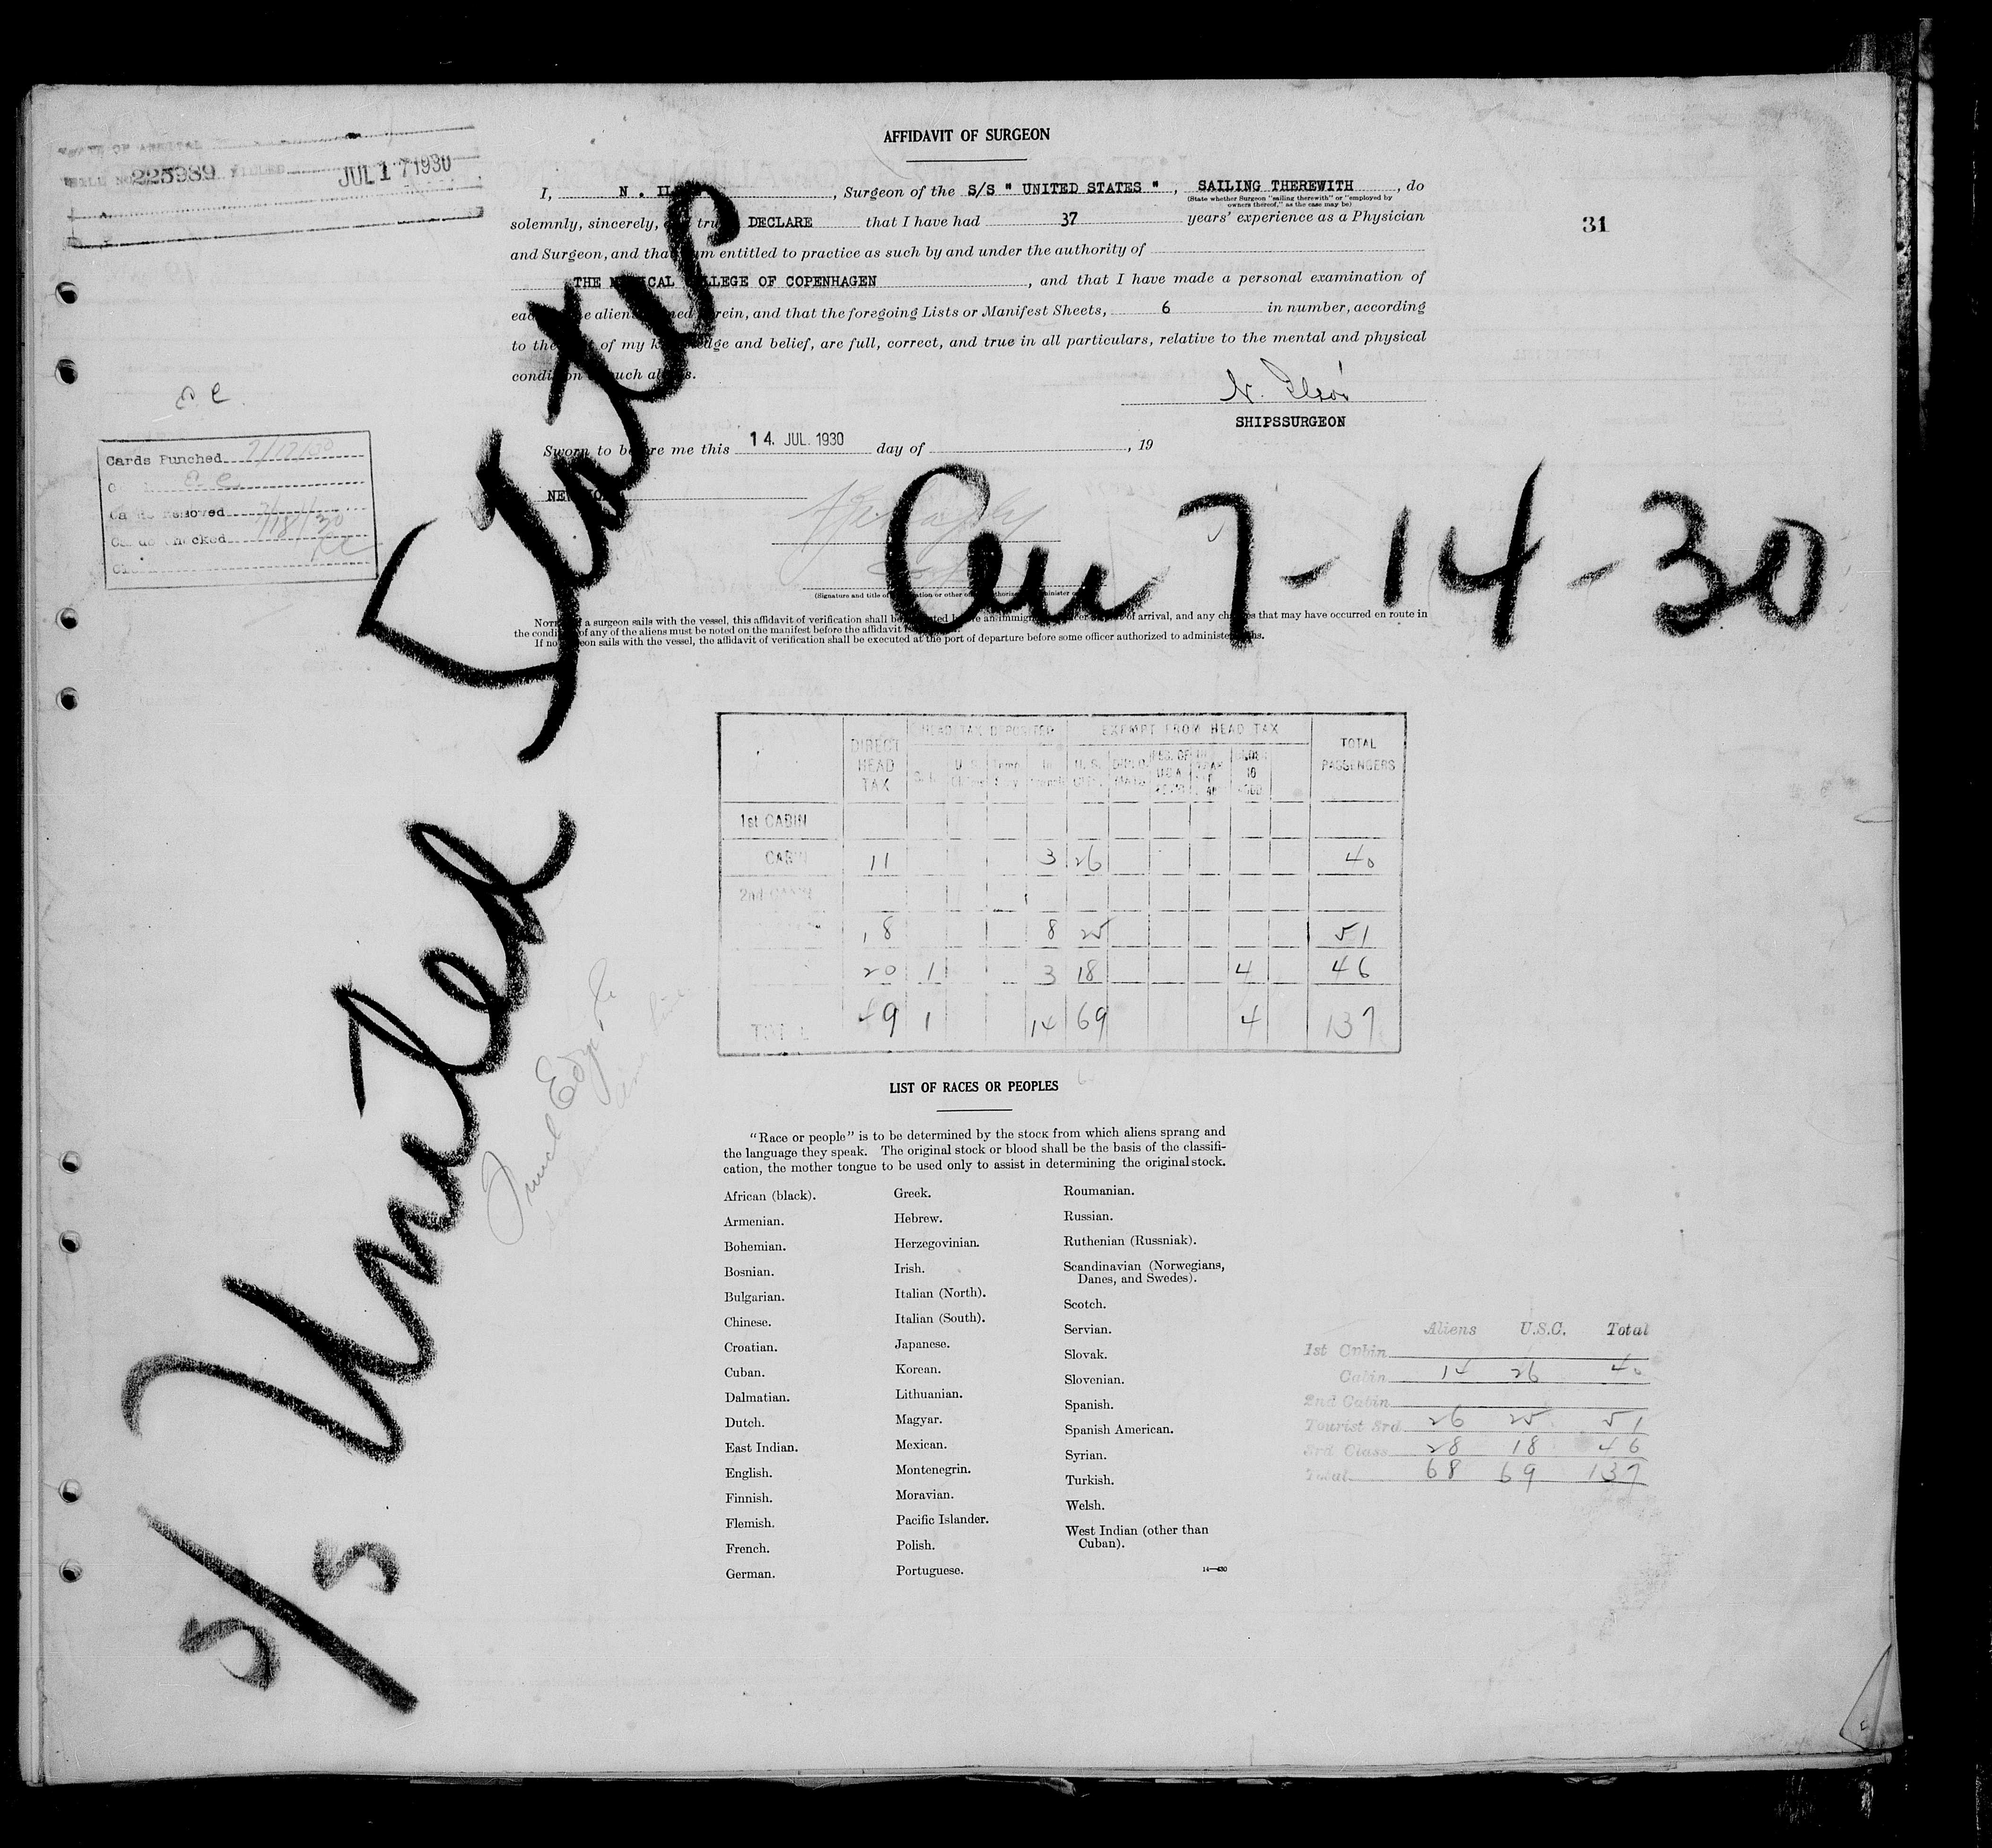 AFFIDAVIT OF SURGEON
225989 JUL 17 1930
I, N. , Surgeon of the S/S " UNITED STATES ", SAILING THEREWITH, do
(State whether Surgeon "sailing therewith" or "employed by
owners thereof," as the case may be)
31
solemnly, sincerely, DECLARE that I have had 37 years' experience as a Physician
and Surgeon, and that am entitled to practice as such by and under the authority of
THE MEDICAL COLLEGE OF COPENHAGEN, and that I have made a personal examination of
each the aliens named herein, and that the foregoing Lists or Manifest Sheets, 6 in number, according
to the of my knowledge and belief, are full, correct, and true in all particulars, relative to the mental and physical
condition such aliens.
N.
SHIPSSURGEON
Sworn to before me this 14. JUL. 1930 day of , 19
NEW YORK
(Signature and title of
NOTE a surgeon sails with the vessel, this affidavit of verification shall be of arrival, and any changes that may have occurred en route in
the condition of any of the aliens must be noted on the manifest before the affidavit
If no surgeon sails with the vessel, the affidavit of verification shall be executed at the port of departure before some officer authorized to administer oaths.
E. C.
Cards Punched 7/17/30
E. C.
Cards Removed
7/18/30
Cards Checked
S/S United States
Arr 7-14-30
DIRECT HEAD TAX HEAD TAX DEPOSITED EXEMPT FROM HEAD TAX TOTAL PASSENGERS
1st CABIN
CABIN 11 3 26 40
2nd CABIN
18 8 25 51
20 1 3 18 4 46
TOTAL 49 1 14 69 4 137
LIST OF RACES OR PEOPLES
"Race or people" is to be determined by the stock from which aliens sprang and
the language they speak. The original stock or blood shall be the basis of the classifi-
cation, the mother tongue to be used only to assist in determining the original stock.
African (black).
Armenian.
Bohemian.
Bosnian.
Bulgarian.
Chinese.
Croatian.
Cuban.
Dalmatian.
Dutch.
East Indian.
English.
Finnish.
Flemish.
French.
German.
Greek.
Hebrew.
Herzegovinian.
Irish.
Italian (North).
Italian (South).
Japanese.
Korean.
Lithuanian.
Magyar.
Mexican.
Montenegrin.
Moravian.
Pacific Islander.
Polish.
Portuguese.
Roumanian.
Russian.
Ruthenian (Russniak).
Scandinavian (Norwegians,
Danes, and Swedes).
Scotch.
Servian.
Slovak.
Slovenian.
Spanish.
Spanish American.
Syrian.
Turkish.
Welsh.
West Indian (other than
Cuban).
Aliens U.S.C. Total
1st Cabin
Cabin 14 26 40
2nd Cabin
Tourist 3rd 26 25 51
3rd Class 28 18 46
Total 68 69 137